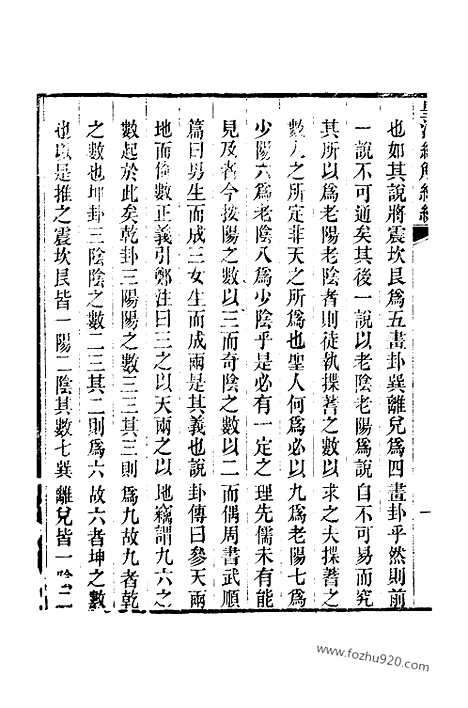 皇清經解續編
也如其說將震坎艮爲五畫卦巽離兌爲四畫卦乎然則前
一說不可通矣其後一說以老陰老陽爲說自不可易而究
其所以爲老陽老陰者則徒執揲蓍之數以求之夫揲蓍之
數人之所定非天之所爲也聖人何爲必以九爲老陽七爲
少陽六爲老陰八爲少陰乎是必有一定之理先儒未有能
見及者今按陽之數以三而奇陰之數以二而偶周書武順
篇曰男生而成三女生而成兩是其義也說卦傳曰參天兩
地而倚數正義引鄭注曰三之以天兩之以地竊謂九六之
數起於此矣乾卦三陽陽之數三三其三則爲九故九者乾
之數也坤卦三陰陰之數二三其二則爲六故六者坤之數
也以是推之震坎艮皆一陽二陰其數七巽離兌皆一陰二
www.fozhu920.com